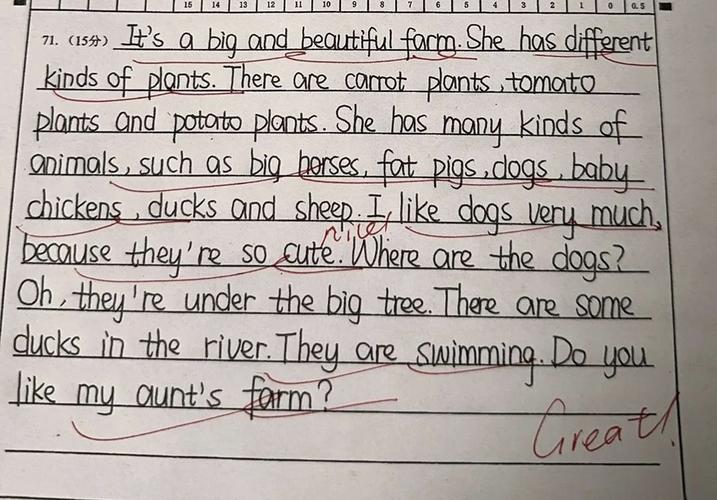 15 14 13 12 11 10 9 8 7 6 5 4 3 2 1 0 0.5
71. (15分) It's a big and beautiful farm. She has different
kinds of plants. There are carrot plants, tomato
plants and potato plants. She has many kinds of
animals, such as big horses, fat pigs, dogs, baby
chickens, ducks and sheep. I like dogs very much,
nice!
because they're so cute. Where are the dogs?
Oh, they're under the big tree. There are some
ducks in the river. They are swimming. Do you
like my aunt's farm?
Great!